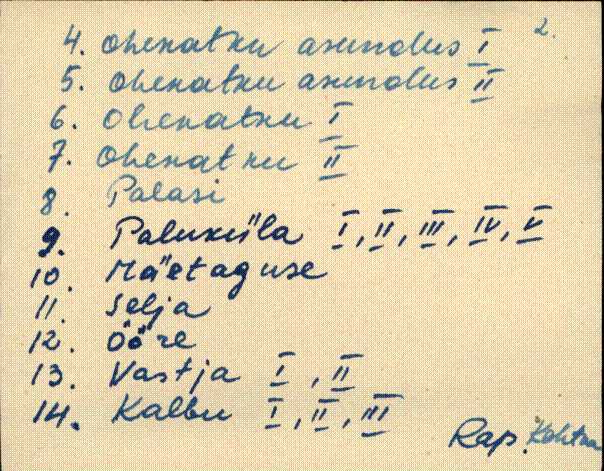 2.
4. Ohekatku asundus I
5. Ohekatku asundus II
6. Ohekatku I
7. Ohekatku II
8. Palasi
9. Paluküla I, II, III, IV, V
10. Mäetaguse
11. Selja
12. Ööre
13. Vastja I, II
14. Kalbu I, II, III
Rap. Kohtm